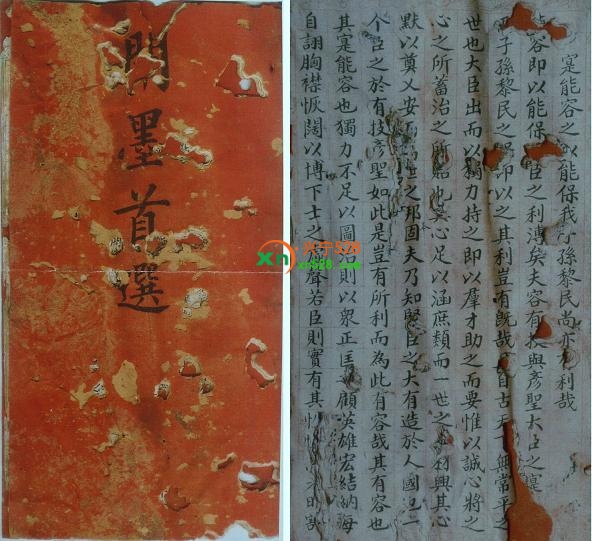 墨首選
寔能容之以能保我子孫黎民尚亦有利哉
能容即以能保臣之利溥矣夫容有技與彥聖大臣之寔
子孫黎民之即以之其利豈有既哉自古天下無常平之
世也大臣出而以獨力持之即以羣才助之而要惟以誠心將之
心之所蓄治之所貽也其心足以涵庶類而一世之材與其心
默以奠乂安世之邦固夫乃知賢臣之大有造於人國也一
个臣之於有技彥聖如此是豈有所利而為此有容哉其有容也
其寔能容也獨力不足以圖治則以眾正匡顧英雄宏結納每
自詡胸襟恢闊以博下士之聲若臣則實有其